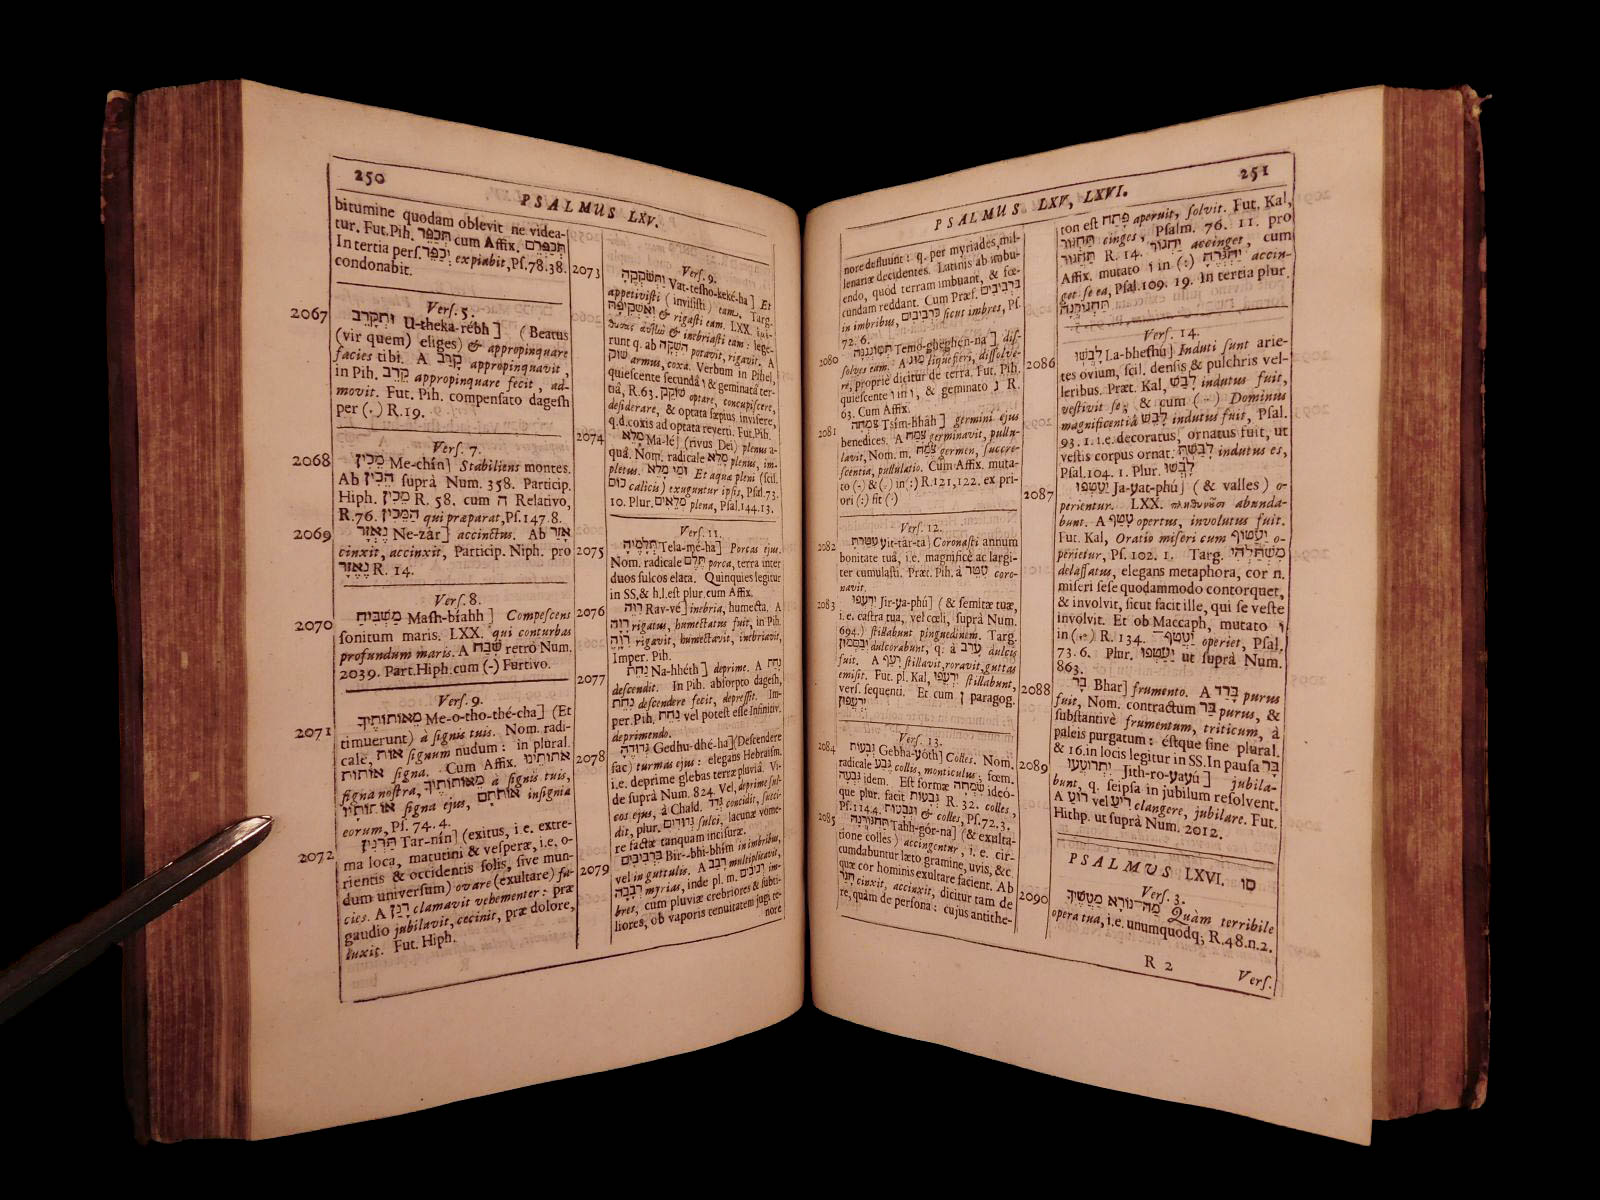 250
PSALMUS LXV.
bitumine quodam oblevit ne videa-
tur. Fut. Pih. תְּכַפֵּר cum Affix. תְּכַפְּרֵם
In tertia perſ. יְכַפֵּר expiabit, Pſ. 78. 38.
condonabit.
Verſ. 5.
2067 וּתְקָרֵב U-theka-rébh ] (Beatus
(vir quem) eliges) & appropinquare
facies tibi. A קָרַב appropinquavit,
in Pih. קֵרַב appropinquare fecit, ad-
movit. Fut. Pih. compenſato dageſh
per (..) R. 19.
Verſ. 7.
2068 מֵכִין Me-chín] Stabiliens montes.
Ab הֵכִין ſuprà Num. 358. Particip.
Hiph. מֵכִין R. 58. cum ה Relativo,
R. 76. הַמֵּכִין qui præparat, Pſ. 147. 8.
2069 נֶאְזָר Ne-zâr] accinctus. Ab אָזַר
cinxit, accinxit, Particip. Niph. pro
נֶאֱזָר R. 14.
Verſ. 8.
2070 מַשְׁבִּיחַ Maſh-bíahh ] Compeſcens
ſonitum maris. LXX. qui conturbas
profundum maris. A שָׁבַח retrò Num.
2039. Part. Hiph. cum (-) Furtivo.
Verſ. 9.
2071 מֵאוֹתוֹתֶיךָ Me-o-tho-thé-cha] (Et
timuerunt) à ſignis tuis. Nom. radi-
cale, אוֹת ſignum nudum: in plural.
אוֹתוֹת ſigna. Cum Affix. אוֹתוֹתֵינוּ
ſigna noſtra, מֵאוֹתוֹתֶיךָ à ſignis tuis,
ſigna ejus, אוֹתֹתָם inſignia
eorum, Pſ. 74. 4.
2072 תַּרְנִין Tar-nín] (exitus, i.e. extre-
ma loca, matutini & veſperæ, i.e. o-
rientis & occidentis ſolis, ſive mun-
dum univerſum) ovare (exultare) fa-
cies. A רָנַן clamavit vehementer: præ
gaudio jubilavit, cecinit, præ dolore,
luxit. Fut. Hiph.
Verſ. 9.
2073 Vat-teſho-keké-ha ] Et
appetiviſti (inviſiſti) eam. Targ.
& rigaſti eam. LXX.
& inebriaſti eam: lege-
runt q. ab הִשְׁקָה potavit, rigavit. A
שׁוֹק armus, coxa. Verbum in Pihel,
quieſcente ſecundâ ו & geminatâ ter-
tiâ, R. 63. שׁוֹקֵק optare, concupiſcere,
deſiderare, & optata ſæpius inviſere,
q.d. coxis ad optata reverti. Fut. Pih.
2074 מָלֵא Ma-lé] (rivus Dei) plenus a-
quâ. Nom. radicale מָלֵא plenus, im-
pletus. וּמֵי מָלֵא Et aquæ pleni (ſcil.
כוֹס calicis) exuguntur ipſis, Pſal. 73.
10. Plur. מְלֵאִים plena, Pſal. 144. 13.
Verſ. 11.
2075 תְּלָמֶיהָ Tela-mé-ha] Porcas ejus.
Nom. radicale תֶּלֶם porca, terra inter
duos ſulcos elata. Quinquies legitur
in SS, & h.l. eſt plur. cum Affix.
2076 רַוֵּה Rav-vé] inebria, humecta. A
רָוָה rigatus, humectatus fuit, in Pih.
רִוָּה rigavit, humectavit, inebriavit,
Imper. Pih.
2077 נַחֵת Na-hhéth ] deprime. A נָחַת
deſcendit. In Pih. abſorpto dageſh,
נִחֵת deſcendere fecit, depreſſit. Im-
per. Pih. נַחֵת vel poteſt eſſe Infinitiv.
deprimendo.
2078 גְּדוּדֶיהָ Gedhu-dhé-ha] (Deſcendere
fac) turmas ejus: elegans Hebraiſm.
i.e. deprime glebas terræ pluviâ. Vi-
de ſuprà Num. 824. Vel, deprime ſul-
cos ejus, à Chald. גְּדַד concidit, ſucci-
dit, plur. גְּדוּדִים ſulci, lacunæ vome-
re factæ tanquam inciſuræ.
2079 בִּרְבִיבִים Bir--bhi-bhím in imbribus,
vel in guttulis. A רָבַב multiplicavit,
רְבָבָה myrias, inde pl. m. רְבִיבִים im-
bres, cum pluviæ crebriores & ſubti-
liores, ob vaporis tenuitatem jugi te-
nore
251
PSALMUS LXV, LXVI.
nore defluunt: q. per myriades, mil-
lenariæ decidentes. Latinis ab imbu-
endo, quòd terram imbuant, & fœ-
cundam reddant. Cum Præf. בִּרְבִיבִים
in imbribus, כִּרְבִיבִים ſicut imbres, Pſ.
72. 6.
2080 תְּמֹגְגֶנָּה Temo-gheghén-na ] diſ-
ſolves eam. A מוּג liquefieri, diſſolve-
re, propriè dicitur de terra. Fut. Pih.
quieſcente ו in ו, & geminato ג R.
63. Cum Affix.
2081 צִמְחָהּ Tſim-hhâh ] germini ejus
benedices. A צָמַח germinavit, pullu-
lavit, Nom. m. צֶמַח germen, ſuccre-
ſcentia, pullulatio. Cum Affix. muta-
to (··) & (·.) in (:) R. 121, 122. ex pri-
ori (:) fit (·)
Verſ. 12.
2082 עִטַּרְתָּ yit-târ-ta] Coronaſti annum
bonitate tuâ, i.e. magnificè ac largi-
ter cumulaſti. Præt. Pih. à עִטֵּר coro-
navit.
2083 יִרְעֲפוּ Jir-ya-phú] (& ſemitæ tuæ,
i.e. caſtra tua, vel cœli, ſuprà Num.
694.) ſtillabunt pinguedinem. Targ.
dulcorabunt, q. à עָרֵב dulcis
fuit. A רָעַף ſtillavit, roravit, guttas
emiſit. Fut. pl. Kal, יִרְעֲפוּ ſtillabunt,
verſ. ſequenti. Et cum ן paragog.
יִרְעֲפוּן
Verſ. 13.
2084 גְּבָעוֹת Gebha-yóth] Colles. Nom.
radicale גֶּבַע collis, monticulus; fœm.
גִּבְעָה idem. Eſt formæ שִׂמְחָה ideó-
que plur. facit גְּבָעוֹת R. 32. colles,
Pſ. 114. 4. וּגְבָעוֹת & colles, Pſ. 72. 3.
2085 תַּחְגֹּרְנָה Tahh-gór-na] (& exulta-
tione colles) accingentur, i.e. cir-
cumdabuntur læto gramine, uvis, &c.
quæ cor hominis exultare faciunt. Ab
חָגַר cinxit, accinxit, dicitur tam de
re, quàm de perſona: cujus antithe-
ton eſt פָּתַח aperuit, ſolvit. Fut. Kal,
תַּחְגּוֹר cinges, יַחְגּוֹר accinget, cum
תַּחֲגוֹר R. 14. Pſalm. 76. 11. pro
Affix. mutato ו in (:) יַחְגְּרֶהָ accin-
get ſe ea, Pſal. 109. 19. In tertia plur.
תַּחְגּוֹרְנָה
Verſ. 14.
2086 לָבְשׁוּ La-bheſhú] Induti ſunt arie-
tes ovium, ſcil. denſis & pulchris vel-
leribus. Præt. Kal, לָבַשׁ indutus fuit,
veſtivit ſe; & cum (..) Dominus
magnificentiâ לָבֵשׁ indutus fuit, Pſal.
93. 1. i.e. decoratus, ornatus fuit, ut
veſtis corpus ornat. לָבַשְׁתָּ indutus es,
Pſal. 104. 1. Plur. לָבְשׁוּ
2087 יַעַטְפוּ Ja-yat-phú] (& valles) o-
perientur. LXX. πληθυνοῦσι abunda-
bunt. A עָטַף opertus, involutus fuit.
Fut. Kal, Oratio miſeri cum יַעֲטוֹף o-
perietur, Pſ. 102. 1. Targ.
delaſſatus, elegans metaphora, cor n.
miſeri ſeſe quodammodo contorquet,
& involvit, ſicut facit ille, qui ſe veſte
involvit. Et ob Maccaph, mutato ו
in (..) R. 134. יַעֲטָף־ operiet, Pſal.
73. 6. Plur. יַעַטְפוּ ut ſuprà Num.
863.
2088 בָר Bhar] frumento. A בָּרַר purus
fuit, Nom. contractum בַּר purus, &
ſubſtantivè frumentum, triticum, à
paleis purgatum: éſtque ſine plural.
& 16. in locis legitur in SS. In pauſa בָּר
2089 יִתְרוֹעֲעוּ Jith-ro-yayú ] jubila-
bunt, q. ſeipſa in jubilum reſolvent.
A רוּעַ vel רִיעַ clangere, jubilare. Fut.
Hithp. ut ſuprà Num. 2012.
PSALMUS LXVI. סו
Verſ. 3.
2090 מַה־נּוֹרָא מַעֲשֶׂיךָ Quàm terribile
opera tua, i.e. unumquodq; R. 48. n. 2.
R 2
Verſ.